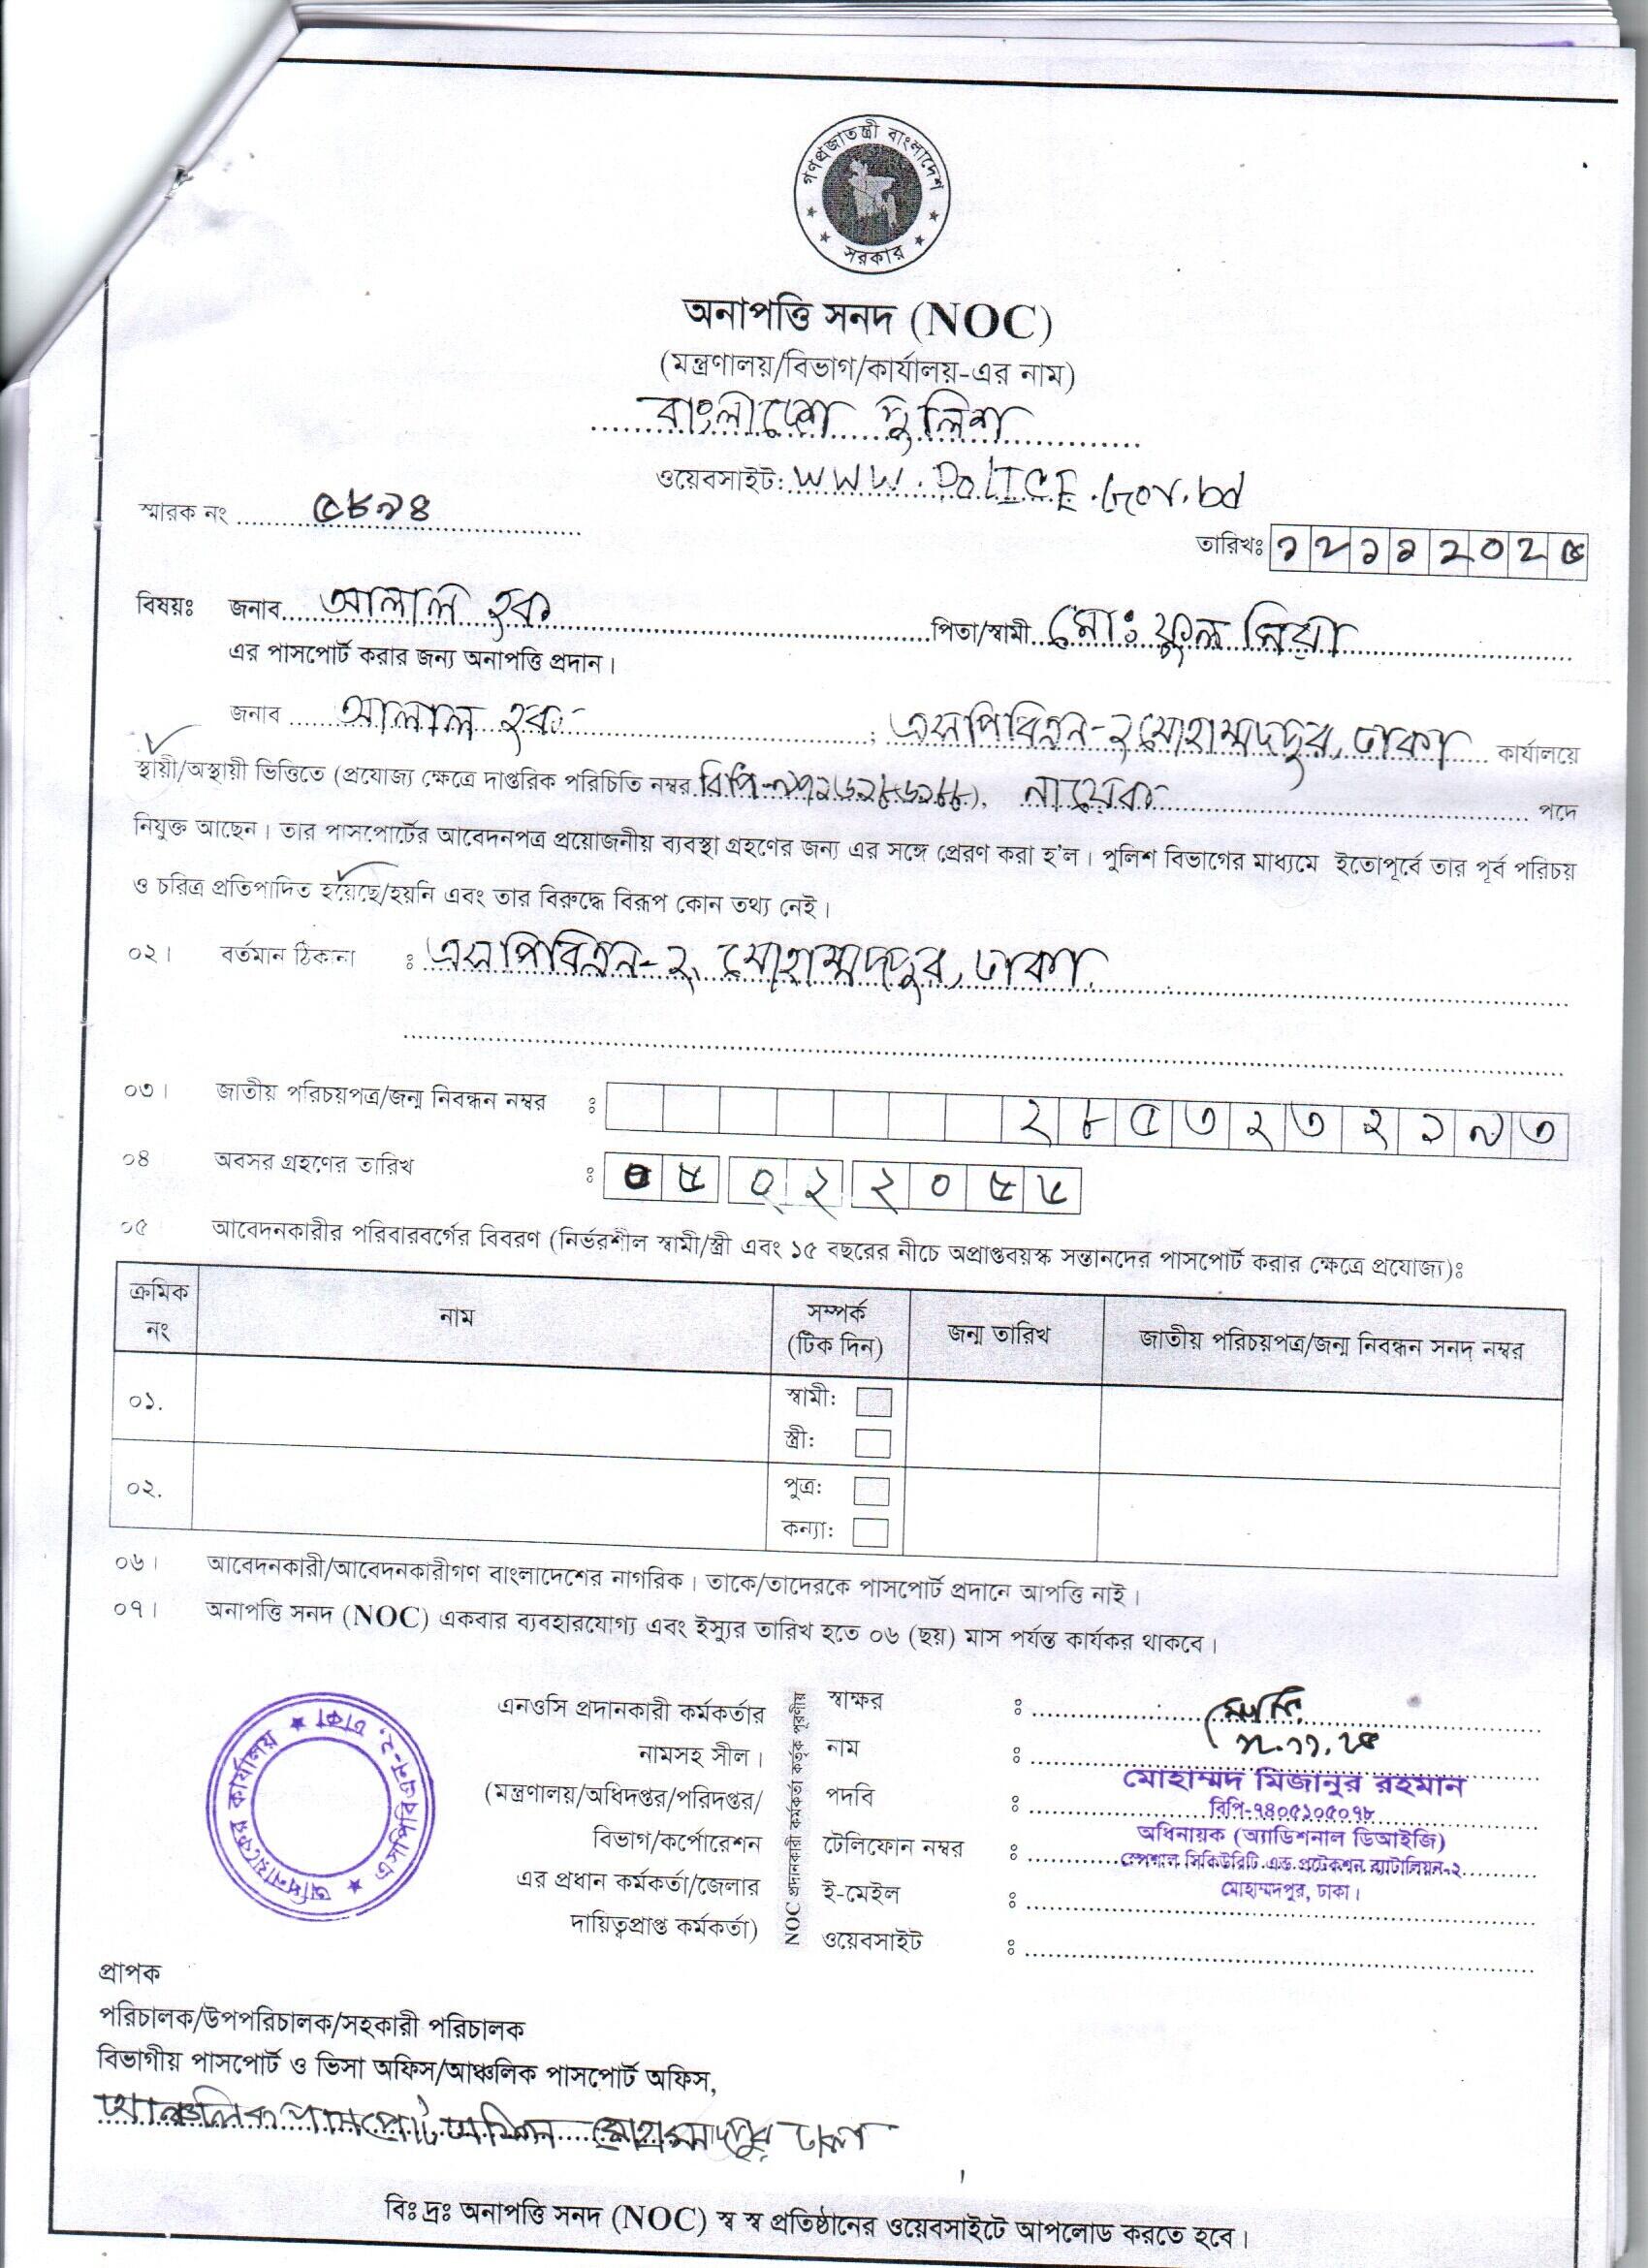 গণপ্রজাতন্ত্রী বাংলাদেশ
সরকার
অনাপত্তি সনদ (NOC)
(মন্ত্রণালয়/বিভাগ/কার্যালয়-এর নাম)
বাংলাদেশ পুলিশ
ওয়েবসাইট: WWW.POLICE.Gov.bd
স্মারক নং ৫৮৯৪
তারিখঃ ১২১১২০২৫
বিষয়ঃ জনাব আলাল হক পিতা/স্বামী মোঃ ফুল মিয়া
এর পাসপোর্ট করার জন্য অনাপত্তি প্রদান।
জনাব আলাল হক ; এসপিবিএন-২ মোহাম্মদপুর, ঢাকা কার্যালয়ে
স্থায়ী/অস্থায়ী ভিত্তিতে (প্রযোজ্য ক্ষেত্রে দাপ্তরিক পরিচিতি নম্বর বিপি-), নায়েক পদে
নিযুক্ত আছেন। তার পাসপোর্টের আবেদনপত্র প্রয়োজনীয় ব্যবস্থা গ্রহণের জন্য এর সঙ্গে প্রেরণ করা হ'ল। পুলিশ বিভাগের মাধ্যমে ইতোপূর্বে তার পূর্ব পরিচয়
ও চরিত্র প্রতিপাদিত হয়েছে/হয়নি এবং তার বিরুদ্ধে বিরূপ কোন তথ্য নেই।
০২। বর্তমান ঠিকানা : এসপিবিএন-২, মোহাম্মদপুর, ঢাকা
০৩। জাতীয় পরিচয়পত্র/জন্ম নিবন্ধন নম্বর : ২৮৫৩২৩২১৯৩
০৪ অবসর গ্রহণের তারিখ : ০৫০২২০৫৬
০৫ আবেদনকারীর পরিবারবর্গের বিবরণ (নির্ভরশীল স্বামী/স্ত্রী এবং ১৫ বছরের নীচে অপ্রাপ্তবয়স্ক সন্তানদের পাসপোর্ট করার ক্ষেত্রে প্রযোজ্য)ঃ
ক্রমিক নং নাম সম্পর্ক (টিক দিন) জন্ম তারিখ জাতীয় পরিচয়পত্র/জন্ম নিবন্ধন সনদ নম্বর
০১. স্বামী:
স্ত্রী:
০২. পুত্র:
কন্যা:
০৬। আবেদনকারী/আবেদনকারীগণ বাংলাদেশের নাগরিক। তাকে/তাদেরকে পাসপোর্ট প্রদানে আপত্তি নাই।
০৭। অনাপত্তি সনদ (NOC) একবার ব্যবহারযোগ্য এবং ইস্যুর তারিখ হতে ০৬ (ছয়) মাস পর্যন্ত কার্যকর থাকবে।
এনওসি প্রদানকারী কর্মকর্তার
নামসহ সীল।
(মন্ত্রণালয়/অধিদপ্তর/পরিদপ্তর/
বিভাগ/কর্পোরেশন
এর প্রধান কর্মকর্তা/জেলার
দায়িত্বপ্রাপ্ত কর্মকর্তা)
অধিনায়কের কার্যালয় ★ এসপিবিএন-২, ঢাকা ★
NOC প্রদানকারী কর্মকর্তা কর্তৃক পূরণীয়
স্বাক্ষর :
১২.১১.২৫
নাম : মোহাম্মদ মিজানুর রহমান
পদবি : বিপি-৭৪০৫১০৫০৭৮
অধিনায়ক (অ্যাডিশনাল ডিআইজি)
টেলিফোন নম্বর : স্পেশাল সিকিউরিটি এন্ড প্রটেকশন ব্যাটালিয়ন-২
মোহাম্মদপুর, ঢাকা।
ই-মেইল :
ওয়েবসাইট :
প্রাপক
পরিচালক/উপপরিচালক/সহকারী পরিচালক
বিভাগীয় পাসপোর্ট ও ভিসা অফিস/আঞ্চলিক পাসপোর্ট অফিস,
আঞ্চলিক পাসপোর্ট অফিস মোহাম্মদপুর ঢাকা
বিঃ দ্রঃ অনাপত্তি সনদ (NOC) স্ব স্ব প্রতিষ্ঠানের ওয়েবসাইটে আপলোড করতে হবে।